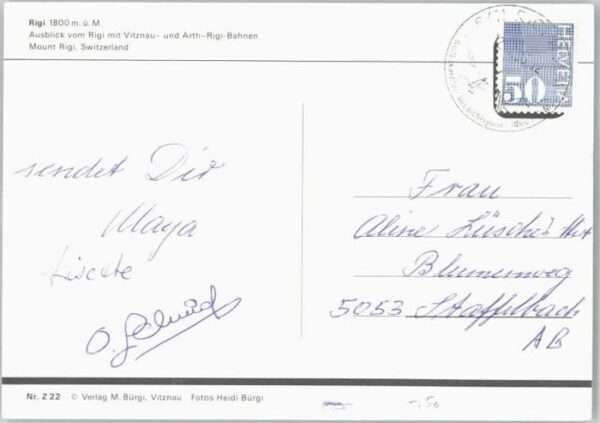 Rigi 1800 m. ü. M.
Ausblick vom Rigi mit Vitznau- und Arth-Rigi-Bahnen
Mount Rigi, Switzerland
HELVETIA
50
sendet Dir
Maya
Liselte
O. Schmid
Frau
Aline Lüscher
Blumenweg
5053 Staffelbach
AB
Nr. Z 22 © Verlag M. Bürgi, Vitznau Fotos Heidi Bürgi
-.50